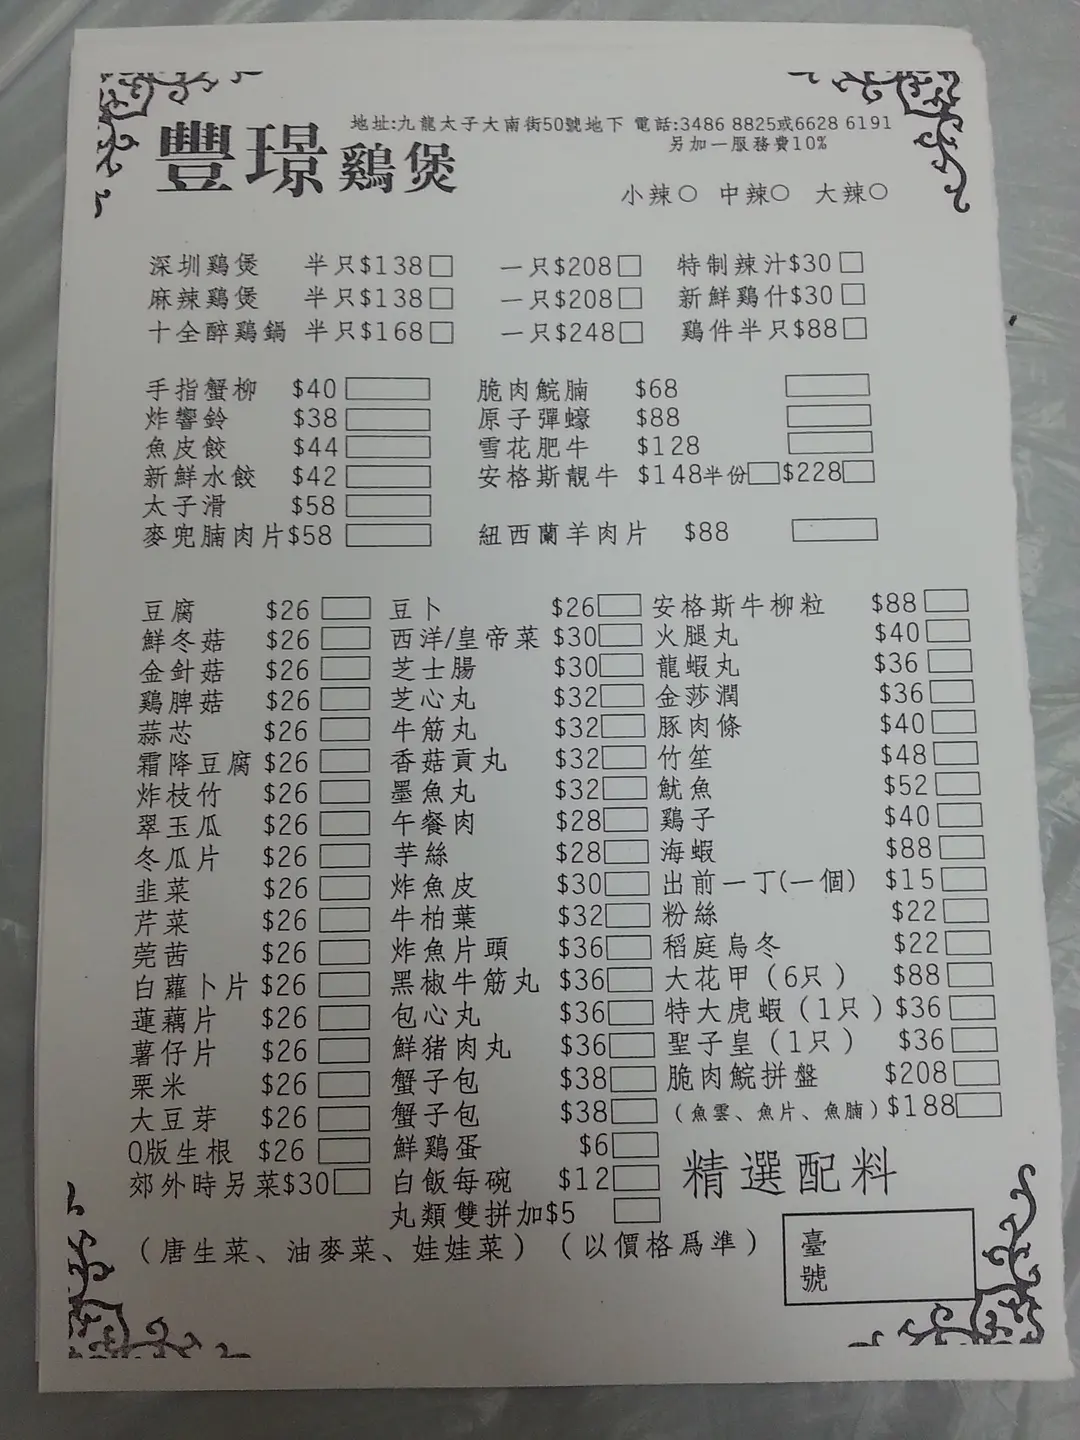 豐璟鷄煲
地址:九龍太子大南街50號地下 電話:3486 8825或6628 6191
另加一服務費10%
小辣○ 中辣○ 大辣○
深圳鷄煲 半只$138□ 一只$208□ 特制辣汁$30□
麻辣鷄煲 半只$138□ 一只$208□ 新鮮鷄什$30□
十全醉鷄鍋 半只$168□ 一只$248□ 鷄件半只$88□
手指蟹柳 $40 脆肉鯇腩 $68
炸響鈴 $38 原子彈蠔 $88
魚皮餃 $44 雪花肥牛 $128
新鮮水餃 $42 安格斯靚牛 $148半份□$228□
太子滑 $58
麥兜腩肉片$58 紐西蘭羊肉片 $88
豆腐 $26 豆卜 $26 安格斯牛柳粒 $88
鮮冬菇 $26 西洋/皇帝菜 $30 火腿丸 $40
金針菇 $26 芝士腸 $30 龍蝦丸 $36
鷄脾菇 $26 芝心丸 $32 金莎潤 $36
蒜芯 $26 牛筋丸 $32 豚肉條 $40
霜降豆腐 $26 香菇貢丸 $32 竹笙 $48
炸枝竹 $26 墨魚丸 $32 魷魚 $52
翠玉瓜 $26 午餐肉 $28 鷄子 $40
冬瓜片 $26 芋絲 $28 海蝦 $88
韭菜 $26 炸魚皮 $30 出前一丁(一個) $15
芹菜 $26 牛柏葉 $32 粉絲 $22
莞茜 $26 炸魚片頭 $36 稻庭烏冬 $22
白蘿卜片 $26 黑椒牛筋丸 $36 大花甲（6只） $88
蓮藕片 $26 包心丸 $36 特大虎蝦（1只）$36
薯仔片 $26 鮮猪肉丸 $36 聖子皇（1只） $36
粟米 $26 蟹子包 $38 脆肉鯇拼盤 $208
大豆芽 $26 蟹子包 $38 （魚雲、魚片、魚腩）$188
Q版生根 $26 鮮鷄蛋 $6
郊外時另菜$30 白飯每碗 $12 精選配料
丸類雙拼加$5
（唐生菜、油麥菜、娃娃菜）（以價格爲準）
臺
號